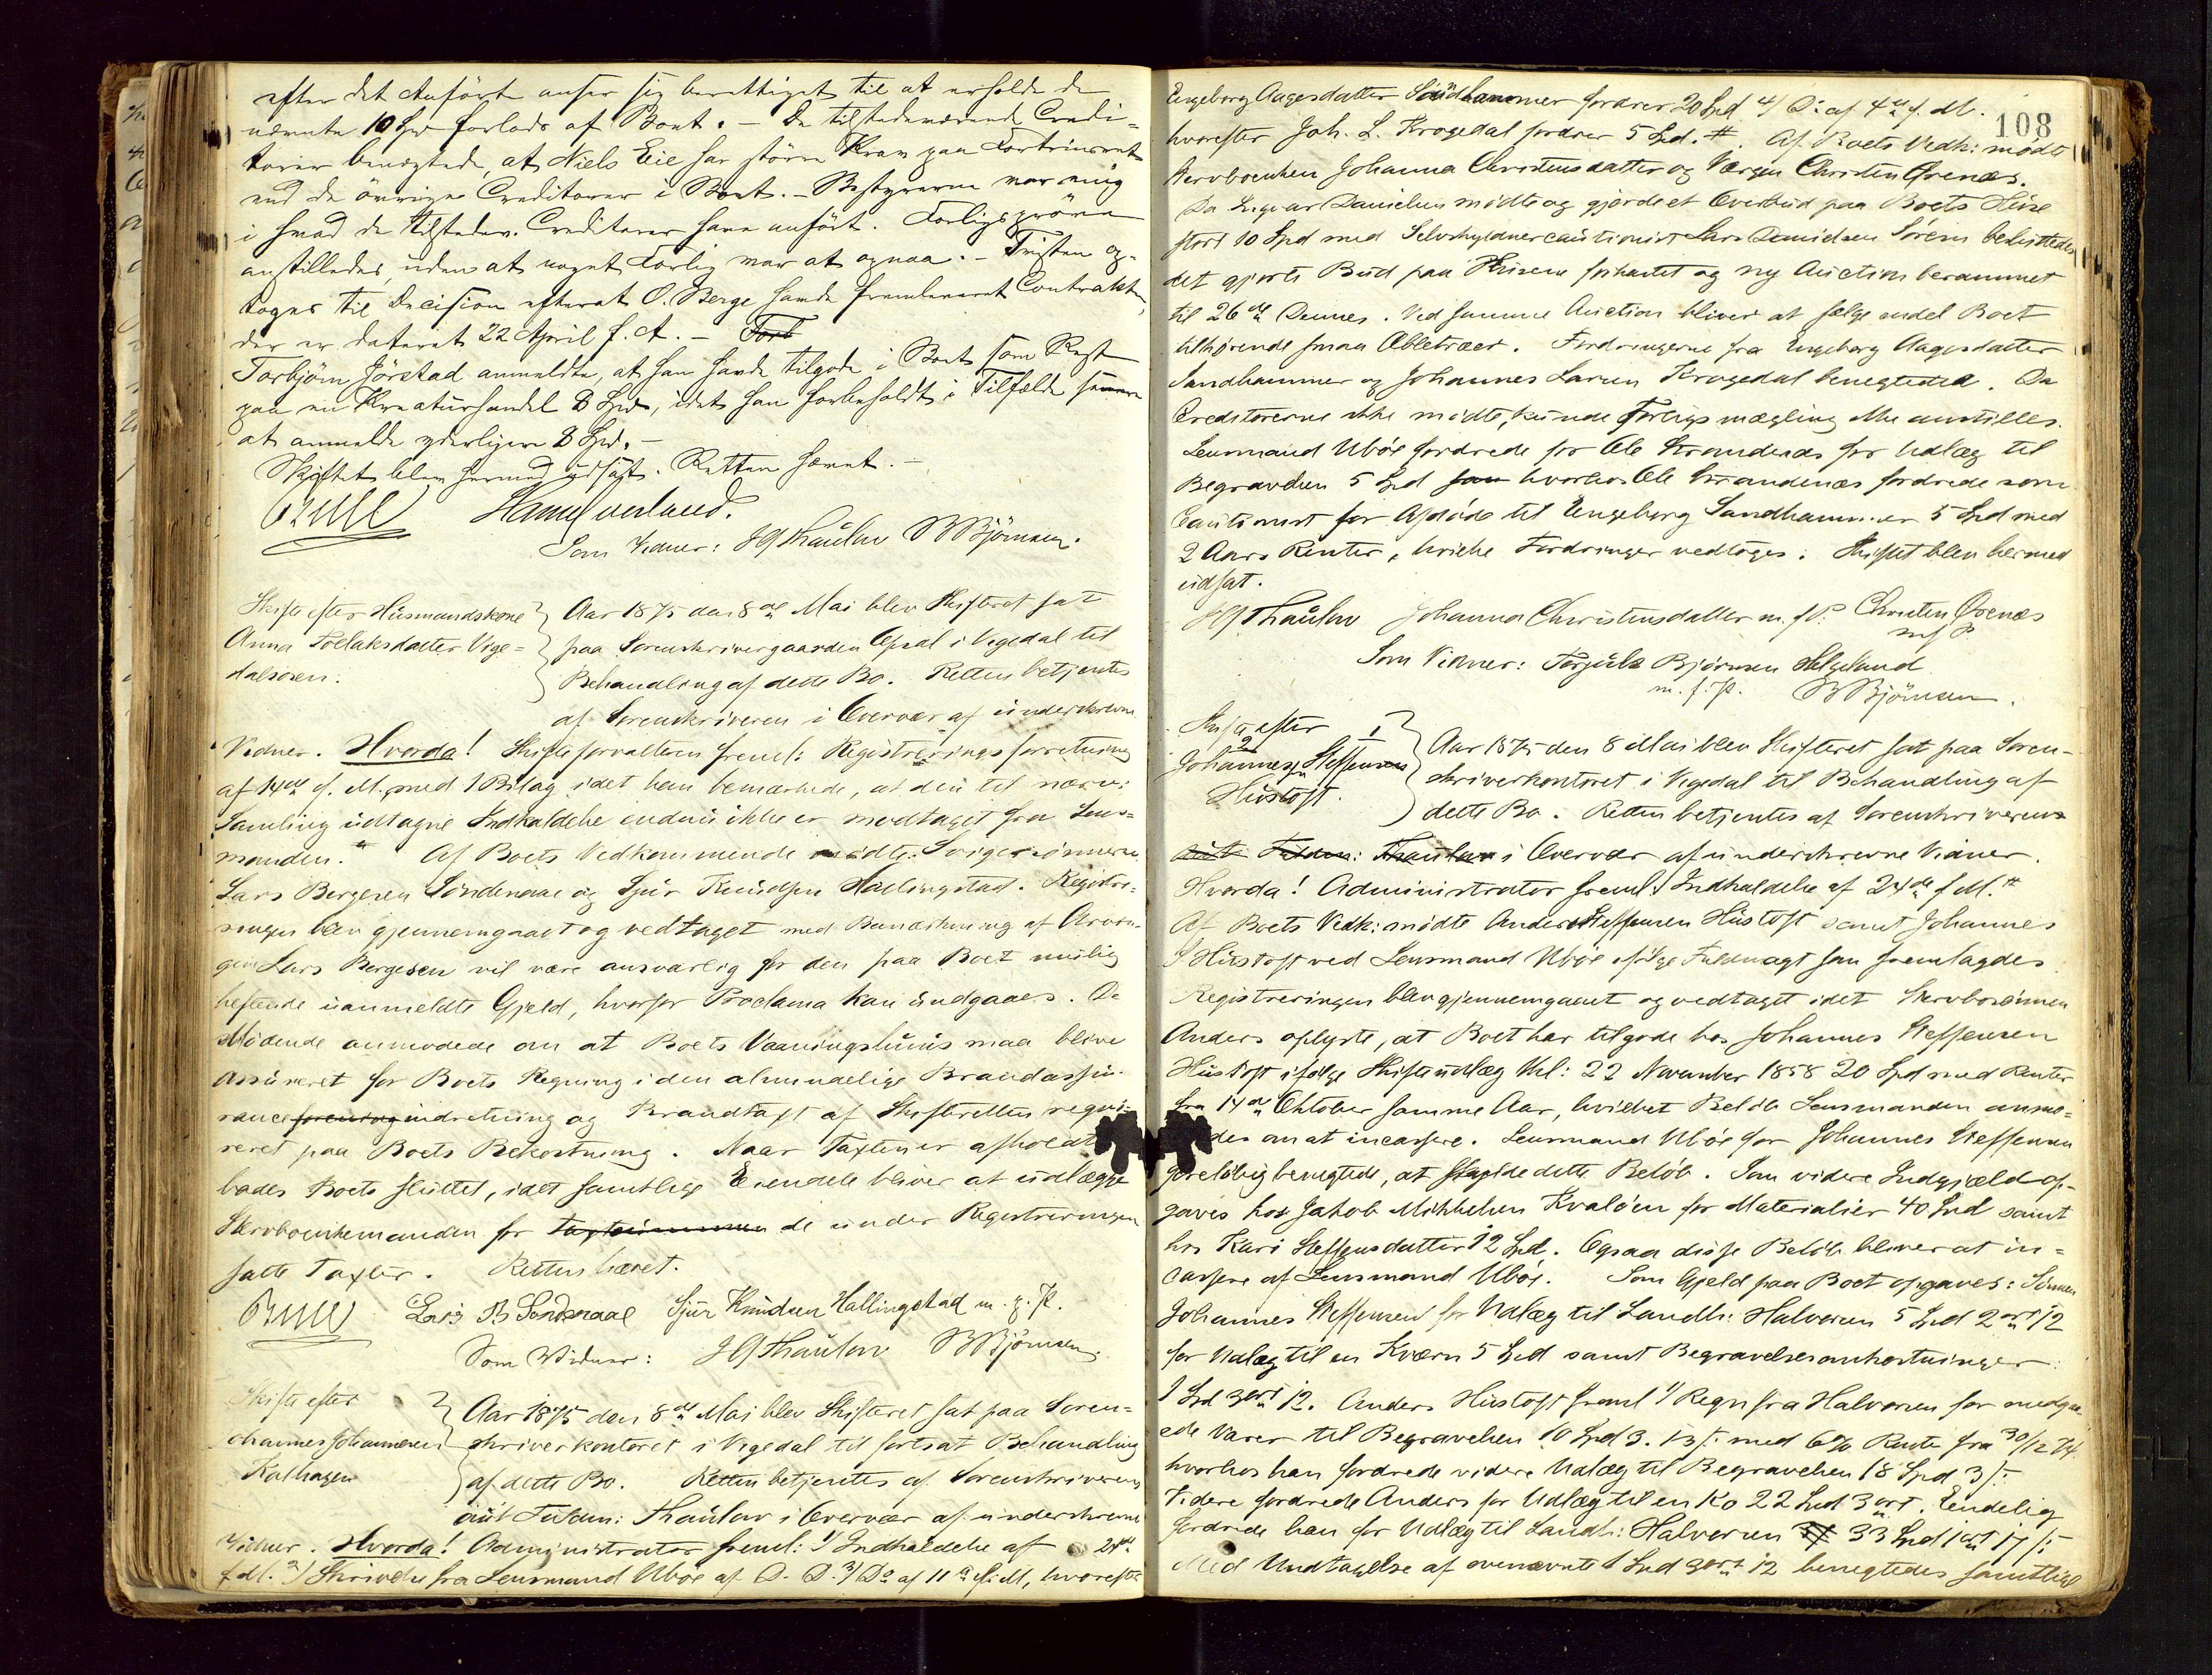 efter det Anførte anser sig berettiget til at erholde de
nævnte 10 Spd forlods af Boet. – De tilstedeværende Credi-
torer benægtede, at Niels Eie har større Krav paa
end de øvrige Creditorer i Boet. – Bestyreren var enig
i hvad de tilstedev. Creditorer have anført. Forligsprøve
anstilledes, uden at noget Forlig var at opnaa. – Tvisten op-
toges til Decision efterat O. Berge havde fremleveret Contrakten,
der er dateret 22 April f. A. –
Torbjörn Jörstad anmeldte, at han havde tilgode i Boet som Rest
paa en Kreaturhandel 8 Spd, idet han forbeholdt i Tilfælde senere
at anmelde yderligere 8 Spd. –
Skiftet blev hermed udsat. Retten hævet. –
Som Vidner: Thaulow B Bjørnsen.
Skifte efter Husmandskone
Anna Toelaksdatter Vige-
dalsosen.
Aar 1875 den 8de Mai blev Skifteret sat
paa Sorenskrivergaarden Opsal i Vigedal til
Behandling af dette Bo. Retten betjentes
af Sorenskriveren i Overvær af underskrevne
Vidner. Hvorda! Skifteforvalteren freml: Registreringsforretning
af 14de f. M. med 1 Bilag idet han bemærkede, at den til nærv:
Samling udtagne Indkaldelse endnu ikke er modtaget fra Lens-
manden. Af Boets Vedkommende mødte Svigersønnerne
Lars Bergesen Söndenaae og Sjur Knudsen Hallingstad. Registre-
ringen blev gjennemgaaet og vedtaget med Bemærkning af Arvin-
gen Lars Bergesen vil være ansvarlig for den paa Boet mulig
heftende uanmeldte Gjeld, hvorfor Proclama kan undgaaes. De
Mødende anmodede om at Boets Vaaningshuus maa blive
assureret for Boets Regning i den almindelige Brandassu-
ranceforening indretning og Brandtaxt af Skifteretten requi-
reret paa Boets Bekostning. Naar Taxten er afholdt
bades Boets sluttet, idet samtlige Eiendele bliver at udlægge
Stervboenkemanden for de under Registreringen
satte Taxter. Retten hævet.
Lars B Söndenaal Sjur Knudsen Hallingstad m. f. P.
Som Vidner: Thaulow B Bjørnsen.
Skifte efter
Johannes Johannesen
Kalhagen
Aar 1875 den 8de Mai blev Skifteret sat paa Soren-
skriverkontoret i Vigedal til fortsat Behandling
af dette Bo. Retten betjentes af Sorenskriverens
aut Fuldm: Thaulow i Overvær af underskrevne
Vidner. Hvorda! Administrator freml: 1/ Indkaldelse af 24de
f. M. 2/ Skrivelse fra Lensmand Ubøe af D. D. 3/ Do af 11te f. M., hvorefter
108
Engeborg Aagesdatter Sandhammer fordrer 20 Spd 4/ Do af 4de f. M.
hvorefter Joh. L. Krogedal fordrer 5 Spd. Af Boets Vedk: mødte
Stervboenken Johanna Christensdatter og Værgen Christen Øvenæs.
Da Ingvar Danielsen mødte og gjorde et Overbud paa Boets Huse
stort 10 Spd med Selvskyldnercautionist Lars Danielsen Sørem besluttedes
det gjorte Bud paa Husene forkastet og ny Auction berammet
til 26de Dennes. Ved samme Auction bliver at sælge endel Boet
tilhørende smaa Æbletræer. Fordringerne fra Engeborg Aagesdatter
Sandhammer og Johannes Larsen Krogedal benegtedes. Da
Creditorerne ikke mødte, kunde Forligsmægling ikke anstilles.
Lensmand Ubøe fordrede for Ole Strandenæs for Udlæg til
Begravelsen 5 Spd hvorhos Ole Strandenæs fordrede som
Cautionist for Afdøde til Engeborg Sandhammer 5 Spd med
2 Aars Renter, hvilke Fordringer vedtoges. Skiftet blev hermed
udsat.
Thaulow Johanna Christensdatter m. f. P. Christen Øvenæs
m f P
Som Vidner: Torjuls Bjørnsen Helgeland
m. f. P. B Bjørnsen.
Skifte efter
Johannes Steffensen
Hustoft.
Aar 1875 den 8 Mai blev Skifteret sat paa Soren-
skriverkontoret i Vigedal til Behandling af
dette Bo. Retten betjentes af Sorenskriverens
aut Fuldm: Thaulow i Overvær af underskrevne Vidner.
Hvorda! Administrator freml. Indkaldelse af 24de f. M.
Af Boets Vedk: mødte Anders Steffensen Hustoft samt Johannes
Hustoft ved Lensmand Ubøe ifølge Fuldmagt som fremlagdes
Registreringen blev gjennemgaaet og vedtaget idet Stervbosønnen
Anders oplyste, at Boet har tilgode hos Johannes Steffensen
Hustoft ifølge Skifteudlæg thl: 22 November 1858 20 Spd med Renter
fra 14de Oktober samme Aar, hvilket Beløb Lensmanden anmo-
des om at incassere. Lensmand Ubøe for Johannes Steffensen
foreløbig benegtede, at skylde dette Beløb. Som videre Indgjæld op-
gaves hos Jakob Mikkelsen Kvaløen for Materialier 40 Spd samt
hos Kari Steffensdatter 12 Spd. Ogsaa disse Beløb bliver at in-
cassere af Lensmand Ubøe. Som Gjeld paa Boet opgaves: Sønnen
Johannes Steffensen for Udlæg til Landh: Halvorsen 5 Spd 2 ort 12
for Udlæg til en Kværn 5 Spd samt Begravelsesomkostninger
1 Spd 3 ort 12. Anders Hustoft freml 1/ Regn fra Halvorsen for medgaa-
ede Varer til Begravelsen 10 Spd 3. 13 s. med 6% Rente fra 30/12 74
hvorhos han fordrede videre Udlæg til Begravelsen 18 Spd 3 s.
Videre fordrede Anders for Udlæg til en Ko 22 Spd 3 ort. Endelig
fordrede han for Udlæg til Landh: Halvorsen 33 Spd 1 ort 17 s.
Med Undtagelse af ovennævnte 1 Spd 3 ort 12 benegtedes samtlige